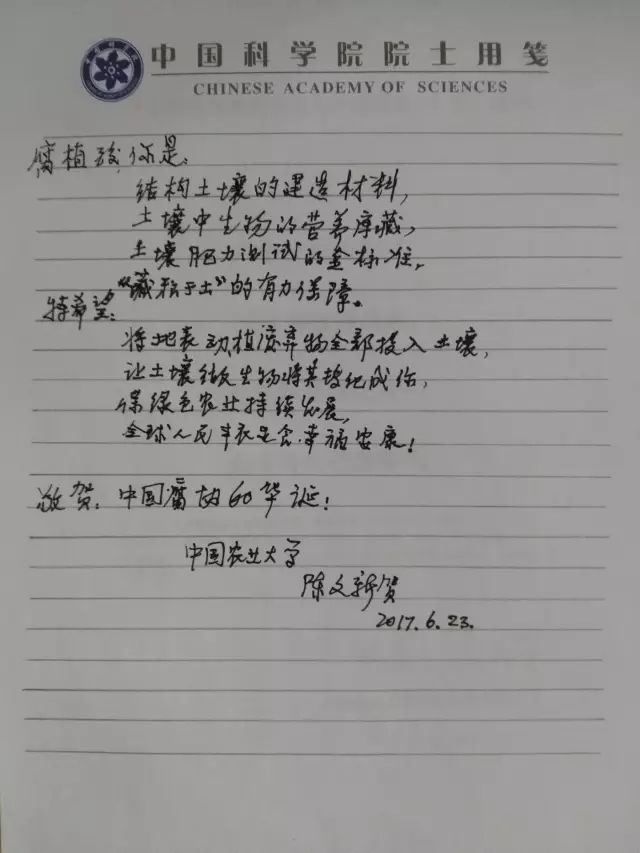 中国科学院院士用笺
CHINESE ACADEMY OF SCIENCES
腐植酸,你是:
结构土壤的建造材料,
土壤中生物的营养库藏,
土壤肥力测试的金标准,
“藏粮于土”的有力保障。
特希望:
将地表动植废弃物全部投入土壤,
让土壤微生物将其转化成你,
保绿色农业持续发展,
全球人民丰衣足食幸福安康!
敬贺:中国腐协60华诞!
中国农业大学
陈文新贺
2017.6.23.